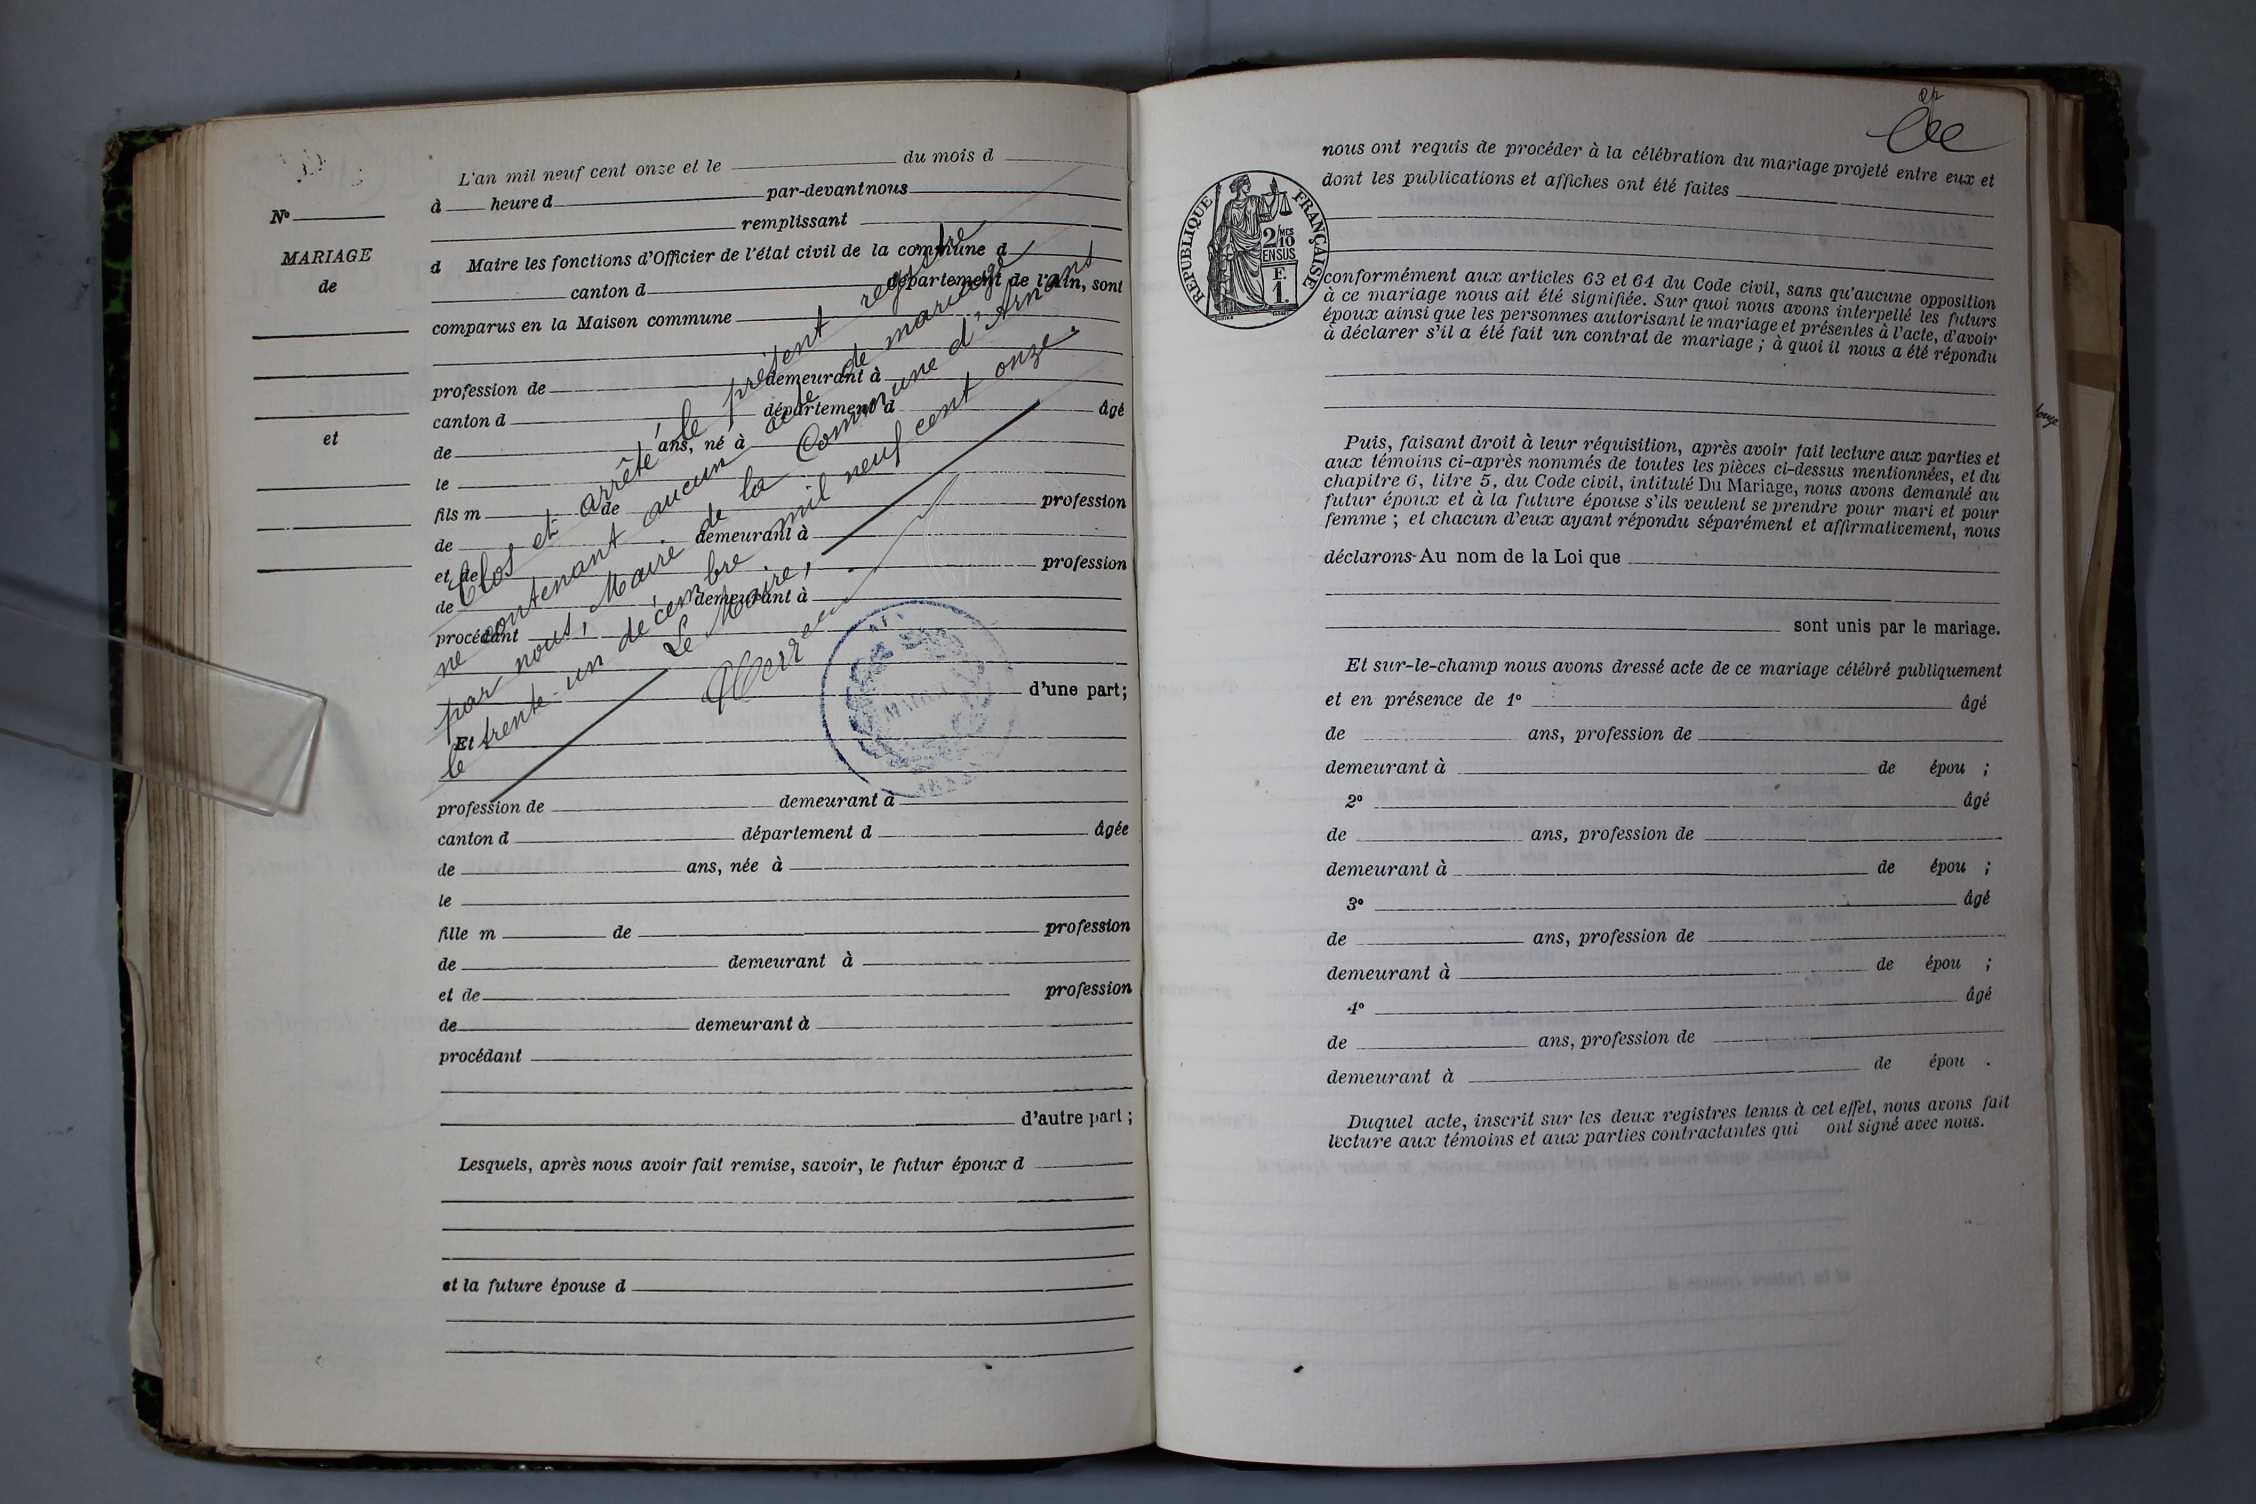 L'an mil neuf cent onze et le du mois d
à heure d par-devant nous
remplissant
d Maire les fonctions d'Officier de l'état civil de la commune d
canton d département de l'Ain, sont
comparus en la Maison commune
profession de demeurant à
canton d département d âgé
de ans, né à
le
fils m de profession
de demeurant à
et de profession
de demeurant à
procédant
d'une part;
Et
profession de demeurant à
canton d département d âgée
de ans, née à
le
fille m de profession
de demeurant à
et de profession
de demeurant à
procédant
d'autre part;
Lesquels, après nous avoir fait remise, savoir, le futur époux d
et la future épouse d
No
MARIAGE
de
et
Clos et arrêté le présent registre
ne contenant aucun acte de mariage
par nous, Maire de la Commune d'Arnans
le trente-un décembre mil neuf cent onze.
Le Maire,
MAIRIE
nous ont requis de procéder à la célébration du mariage projeté entre eux et
dont les publications et affiches ont été faites
RÉPUBLIQUE FRANÇAISE
2/10 MES
EN SUS
F.
1.
conformément aux articles 63 et 64 du Code civil, sans qu'aucune opposition
à ce mariage nous ait été signifiée. Sur quoi nous avons interpellé les futurs
époux ainsi que les personnes autorisant le mariage et présentes à l'acte, d'avoir
à déclarer s'il a été fait un contrat de mariage ; à quoi il nous a été répondu
Puis, faisant droit à leur réquisition, après avoir fait lecture aux parties et
aux témoins ci-après nommés de toutes les pièces ci-dessus mentionnées, et du
chapitre 6, titre 5, du Code civil, intitulé Du Mariage, nous avons demandé au
futur époux et à la future épouse s'ils veulent se prendre pour mari et pour
femme ; et chacun d'eux ayant répondu séparément et affirmativement, nous
déclarons Au nom de la Loi que
sont unis par le mariage.
Et sur-le-champ nous avons dressé acte de ce mariage célébré publiquement
et en présence de 1o âgé
de ans, profession de
demeurant à de épou ;
2o âgé
de ans, profession de
demeurant à de épou ;
3o âgé
de ans, profession de
demeurant à de épou ;
4o âgé
de ans, profession de
demeurant à de épou .
Duquel acte, inscrit sur les deux registres tenus à cet effet, nous avons fait
lecture aux témoins et aux parties contractantes qui ont signé avec nous.